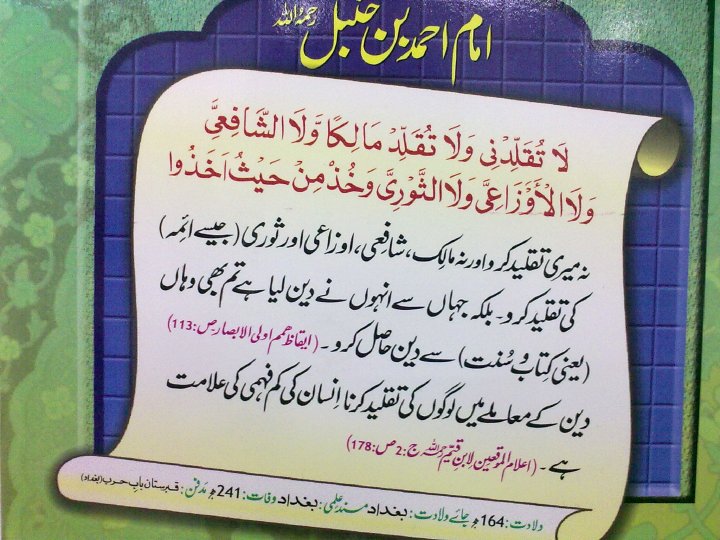 امام احمد بن حنبل رحمہُ اللہ
لَا تُقَلِّدْنِی وَلَا تُقَلِّدْ مَالِکًا وَّلَا الشَّافِعِیَّ
وَلَا الْأَوْزَاعِیَّ وَلَا الثَّوْرِیَّ وَخُذْ مِنْ حَیْثُ اَخَذُوا
نہ میری تقلید کرو اور نہ مالِک، شافعِی، اوزاعِی اور ثوری (جیسے ائِمہ)
کی تقلید کرو۔ بلکہ جہاں سے انہوں نے دین لیا ہے تم بھی وہاں
(یعنی کِتابُ و سُنت) سے دین حاصِل کرو۔ (ایقاظ ھمم اولی الابصار ص:113)
دین کے معاملے میں لوگوں کی تقلید کرنا اِنسان کی کم فہمی کی علامت
ہے۔ (اعلام الموقعین لِابنِ قیّم رحمہ اللہ ج:2 ص:178)
ولادت: 164ھ جائے ولادت: بغداد مسندِ علمی: بغداد وفات: 241ھ مدفن: قبرستان باب حرب (بغداد)